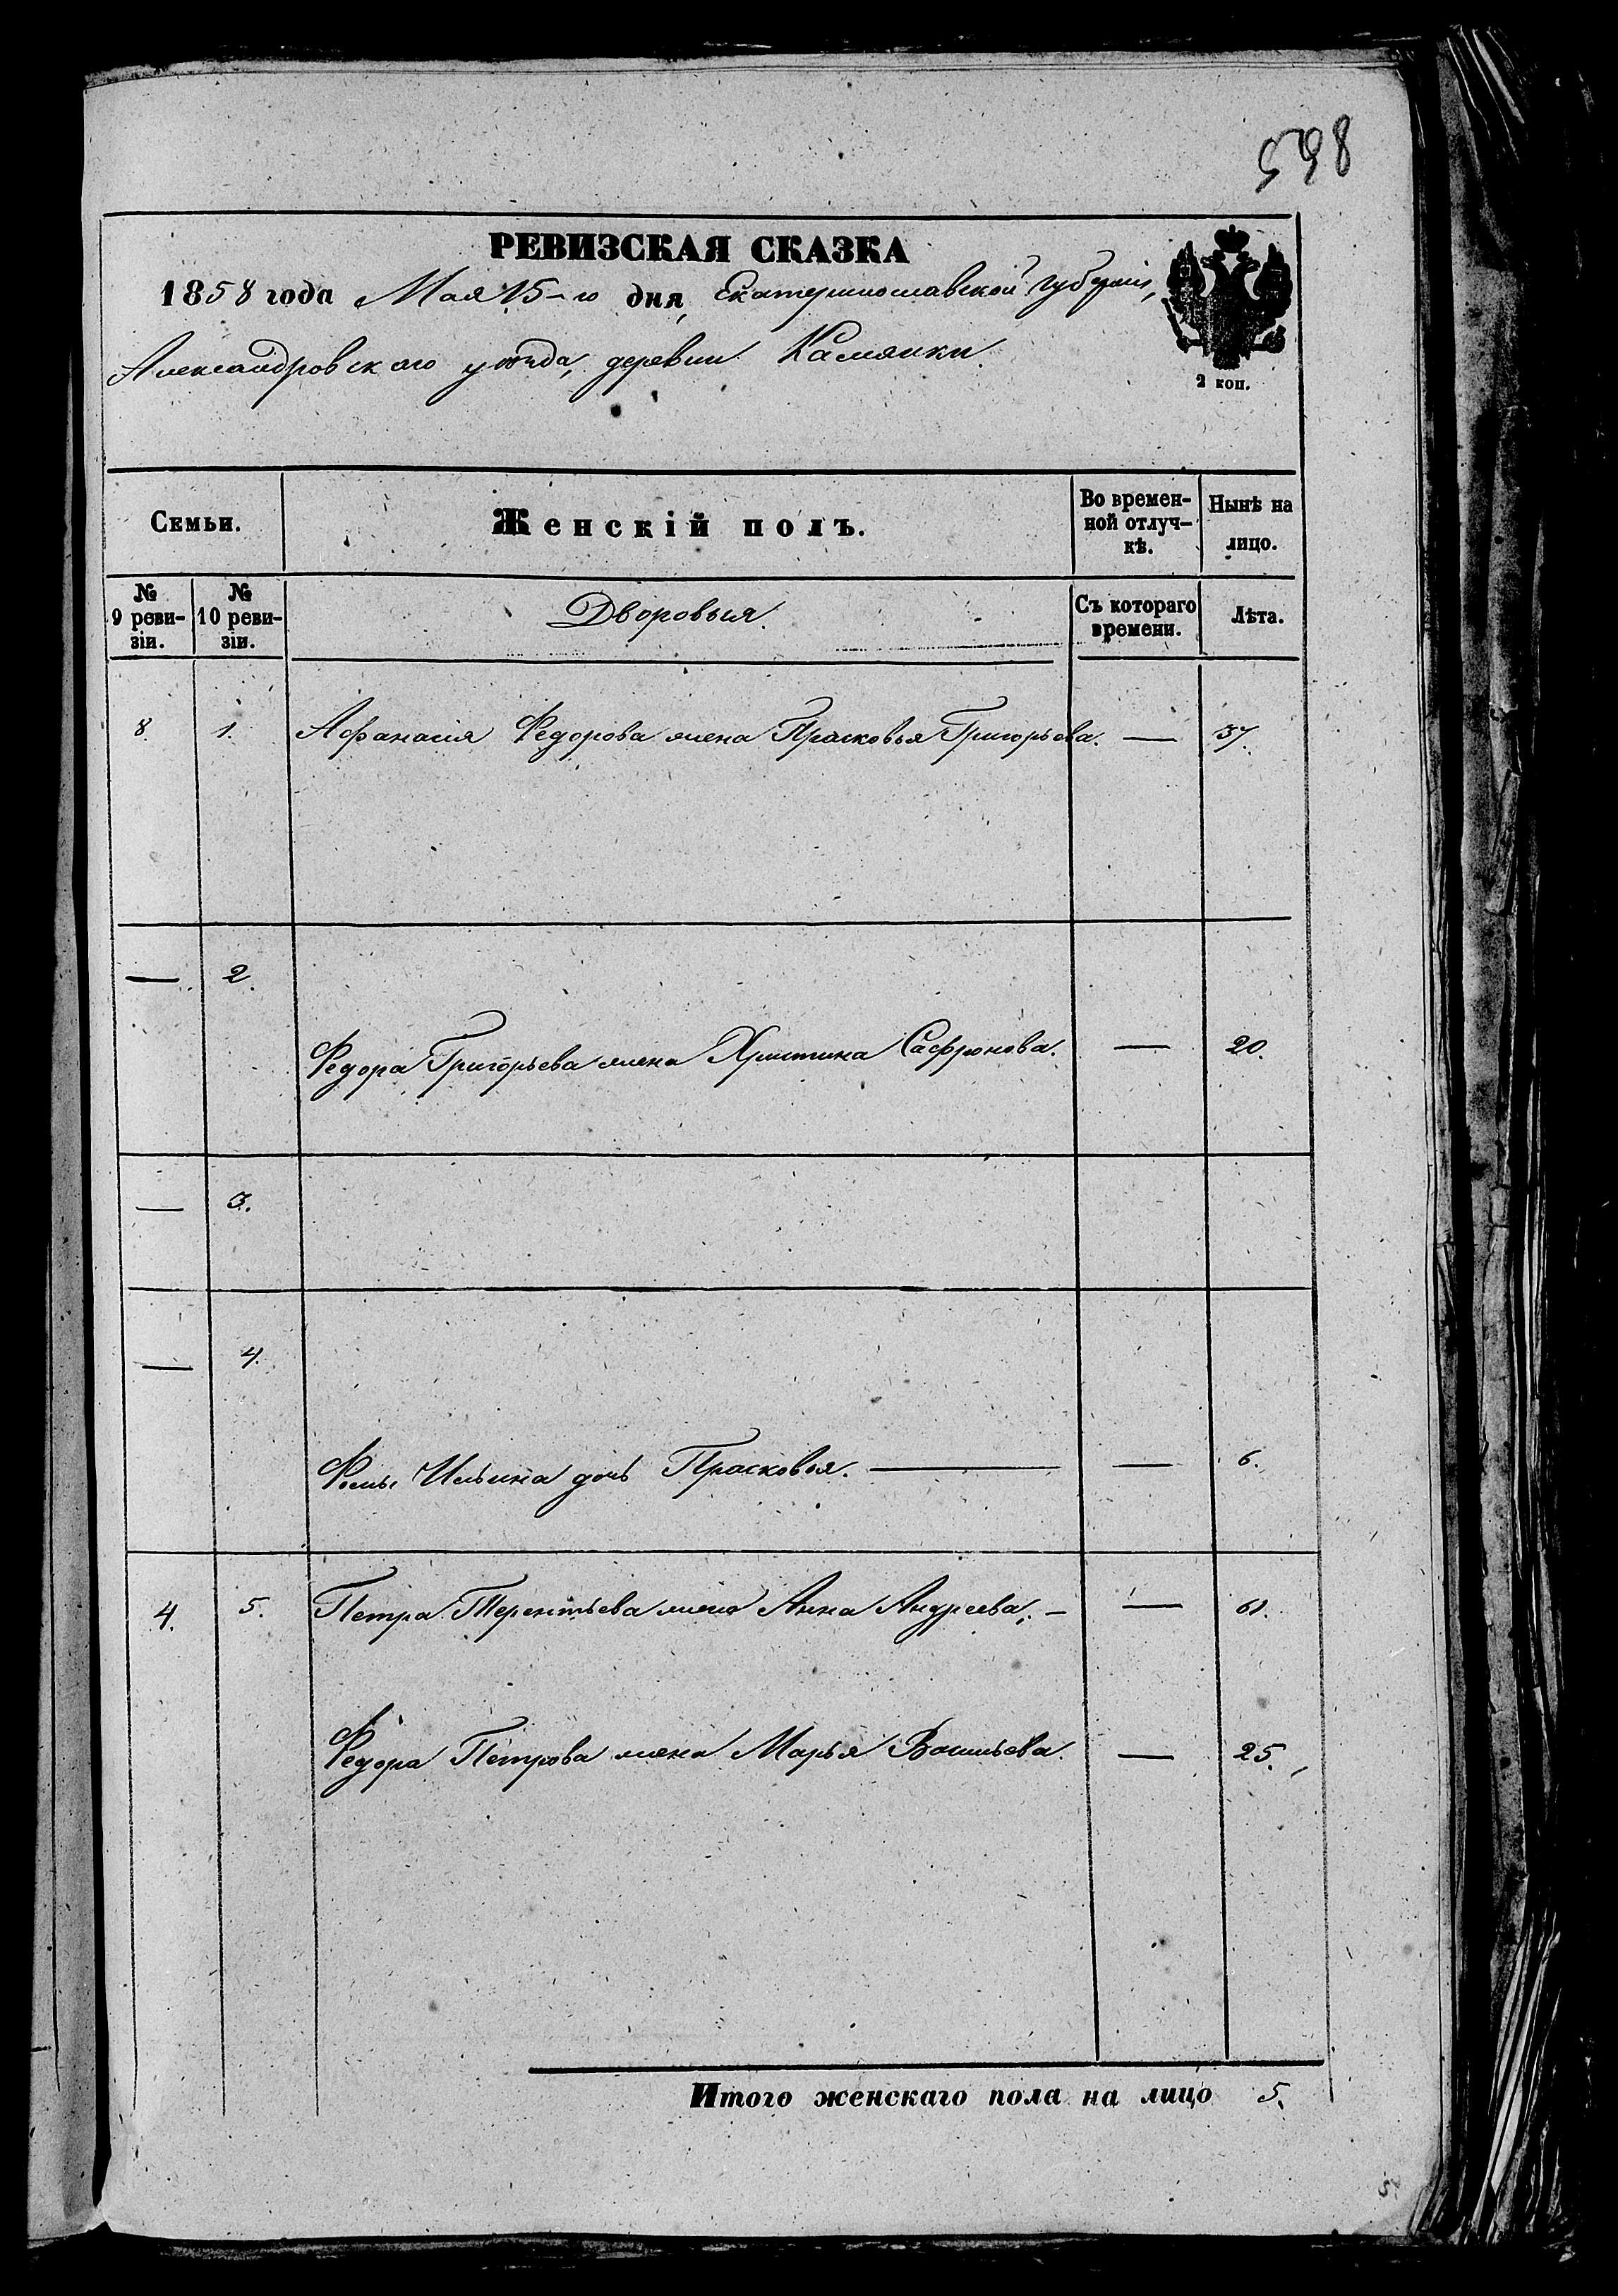 598
РЕВИЗСКАЯ СКАЗКА
1858 года Мая 15-го дня, Екатеринославской Губерніи,
Александровскаго уѣзда, деревни Камянки.
2 коп.
Семьи.
Женскій полъ.
Во времен-
ной отлуч-
кѣ.
Нынѣ на
лицо.
№
9 реви-
зіи.
№
10 реви-
зіи.
Дворовыя.
Съ котораго
времени.
Лѣта.
8. 1. Афанасія Федорова жена Прасковья Григорьева. — 37.
— 2.
Федора Григорьева жена Христина Сафронова. — 20.
— 3.
— 4.
Фомы Ильина дочь Прасковья. — — 6.
4. 5. Петра Терентьева жена Анна Андреева. — — 61.
Федора Петрова жена Марья Васильева. — 25.
Итого женскаго пола на лицо 5.